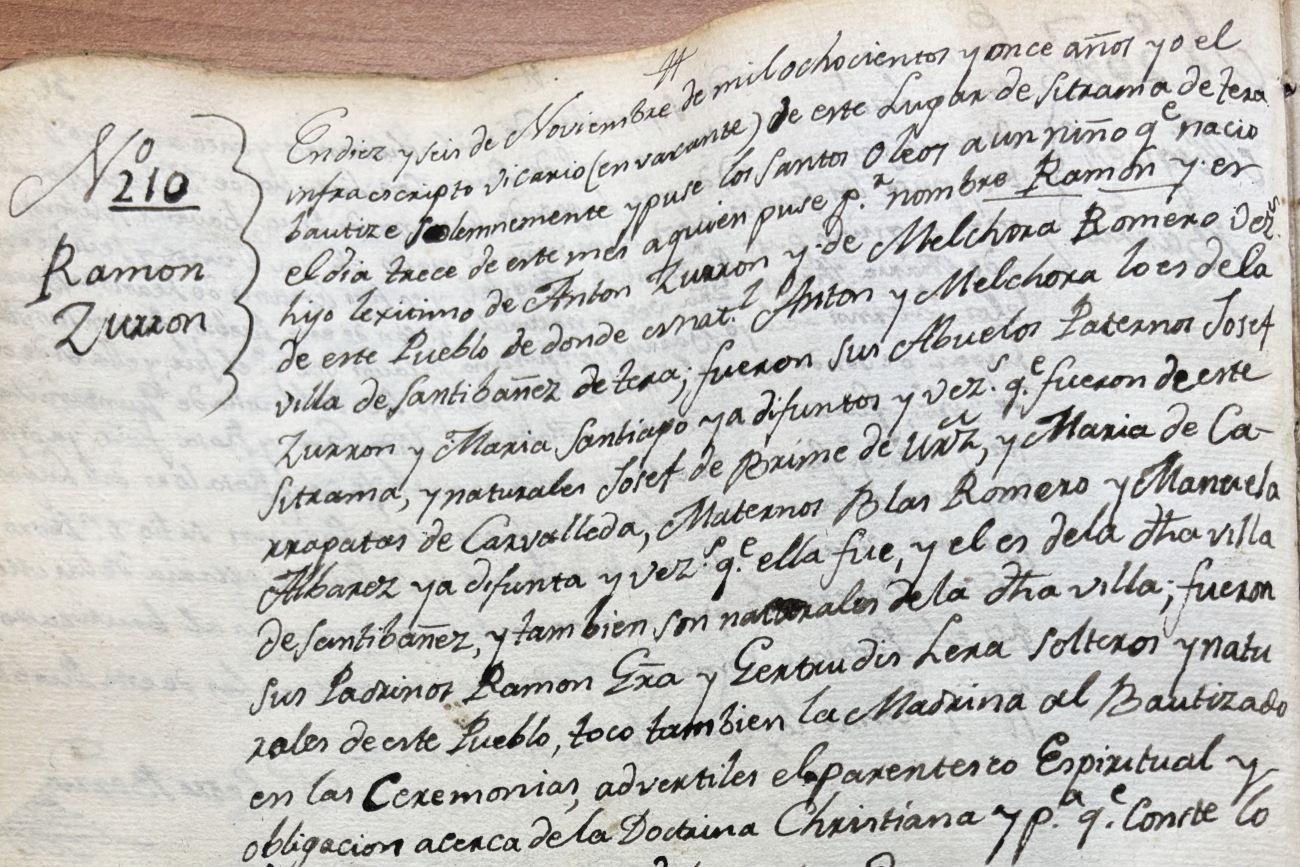 Nº
210
Ramon
Zurron
En diez y seis de Noviembre de mil ochocientos y once años yo el
infraescripto vicario (en vacante) de este Lugar de Sitrama de tera
bautize solemnemente y puse los santos oleos a un niño q.e nacio
el dia trece de este mes a quien puse p.r nombre Ramon y es
hijo lexitimo de Anton Zurron y de Melchora Romero vez.s
de este Pueblo de donde es nat.l Anton y Melchora lo es de la
villa de Santibañez de tera; fueron sus Abuelos Paternos Josef
Zurron y Maria Santiago ya difuntos y vez.s q.e fueron de este
Sitrama, y naturales Josef de Brime de Urz, y Maria de Ca-
rrapatas de Carvalleda, Maternos Blas Romero y Manuela
Albarez ya difunta y vez.s q.e ella fue, y el es de la dha villa
de Santibañez, y tambien son naturales de la dha villa; fueron
sus Padrinos Ramon Gra y Gertrudis Lera solteros y natu
rales de este Pueblo, toco tambien la Madrina al Bautizado
en las Ceremonias, advertiles el parentesco Espiritual y
obligacion acerca de la Doctrina Christiana y p.a q.e Conste lo